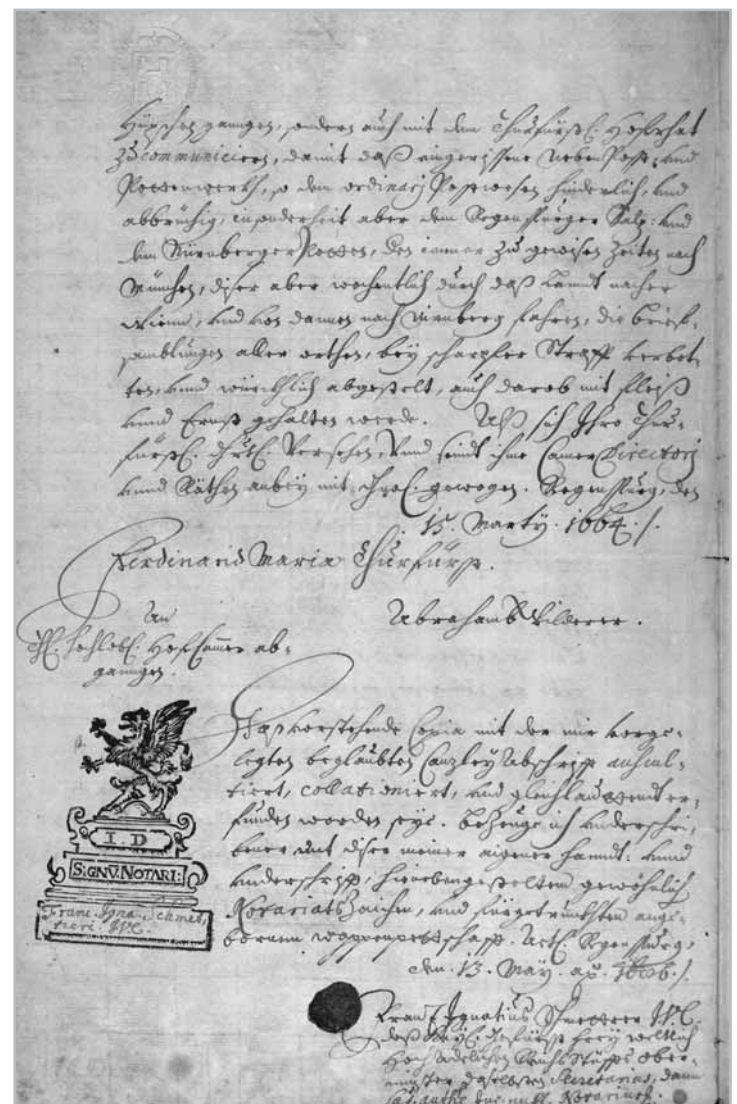 gangen, sondern auch mit dem Churfürstl: Hofrhat
zu communicieren, damit daß eingerissene Neben Post: und
Pottenwerkh, so dem ordinarj Postwesen hinderlich, und
abbrüchig, insonderheit aber dem Regenspurger Salz: und
dem Nürnberger Potten, der immer zu gewisen Zeiten nach
München, diser aber wochentlich durch daß Landt nacher
Wienn, und von dannen nach Nirnberg fahren, die brief
samblungen aller orthen, bey scharpfer Straff verbot
ten, unnd würckhlich abgestelt, auch darob mit fleiß
unnd Ernst gehalten werde. sich Ihro Chur
fürstl: Drtl: Versehen, Unnd seindt ihme Camer Directorj
unnd Räthen anbey mit gewogen. Regenspurg, den
15. Martij. 1664 ./.
Ferdinand Maria Churfürst.
An
hochlobl: Hof Camer ab=
gangen.
Abraham Bilderer.
I D
SIGNV. NOTARI:
Franc. Igna. Schmet
vorstehende Copia mit der mir vorge=
legten beglaubten Canzley Abschrifft auscul=
tiert, collationiert, und gleichlauttendt er=
funden worden seye. Bezeuge ich underschri=
bener mit diser meiner aigener handt: unnd
underschrifft, hieneben gestelltem gewöhnlich
Notariats Zaichen, und fürgetruckhten ange=
bornem wappenpettschafft. Act: Regenspurg,
den. 13. May. ao.
Franz Ignatius
daß Kayl: Gefürst frey weltlich
Hoch adelichen Reichs Stüffts ober=
münster daselbsten Secretarius, dann
Notarius